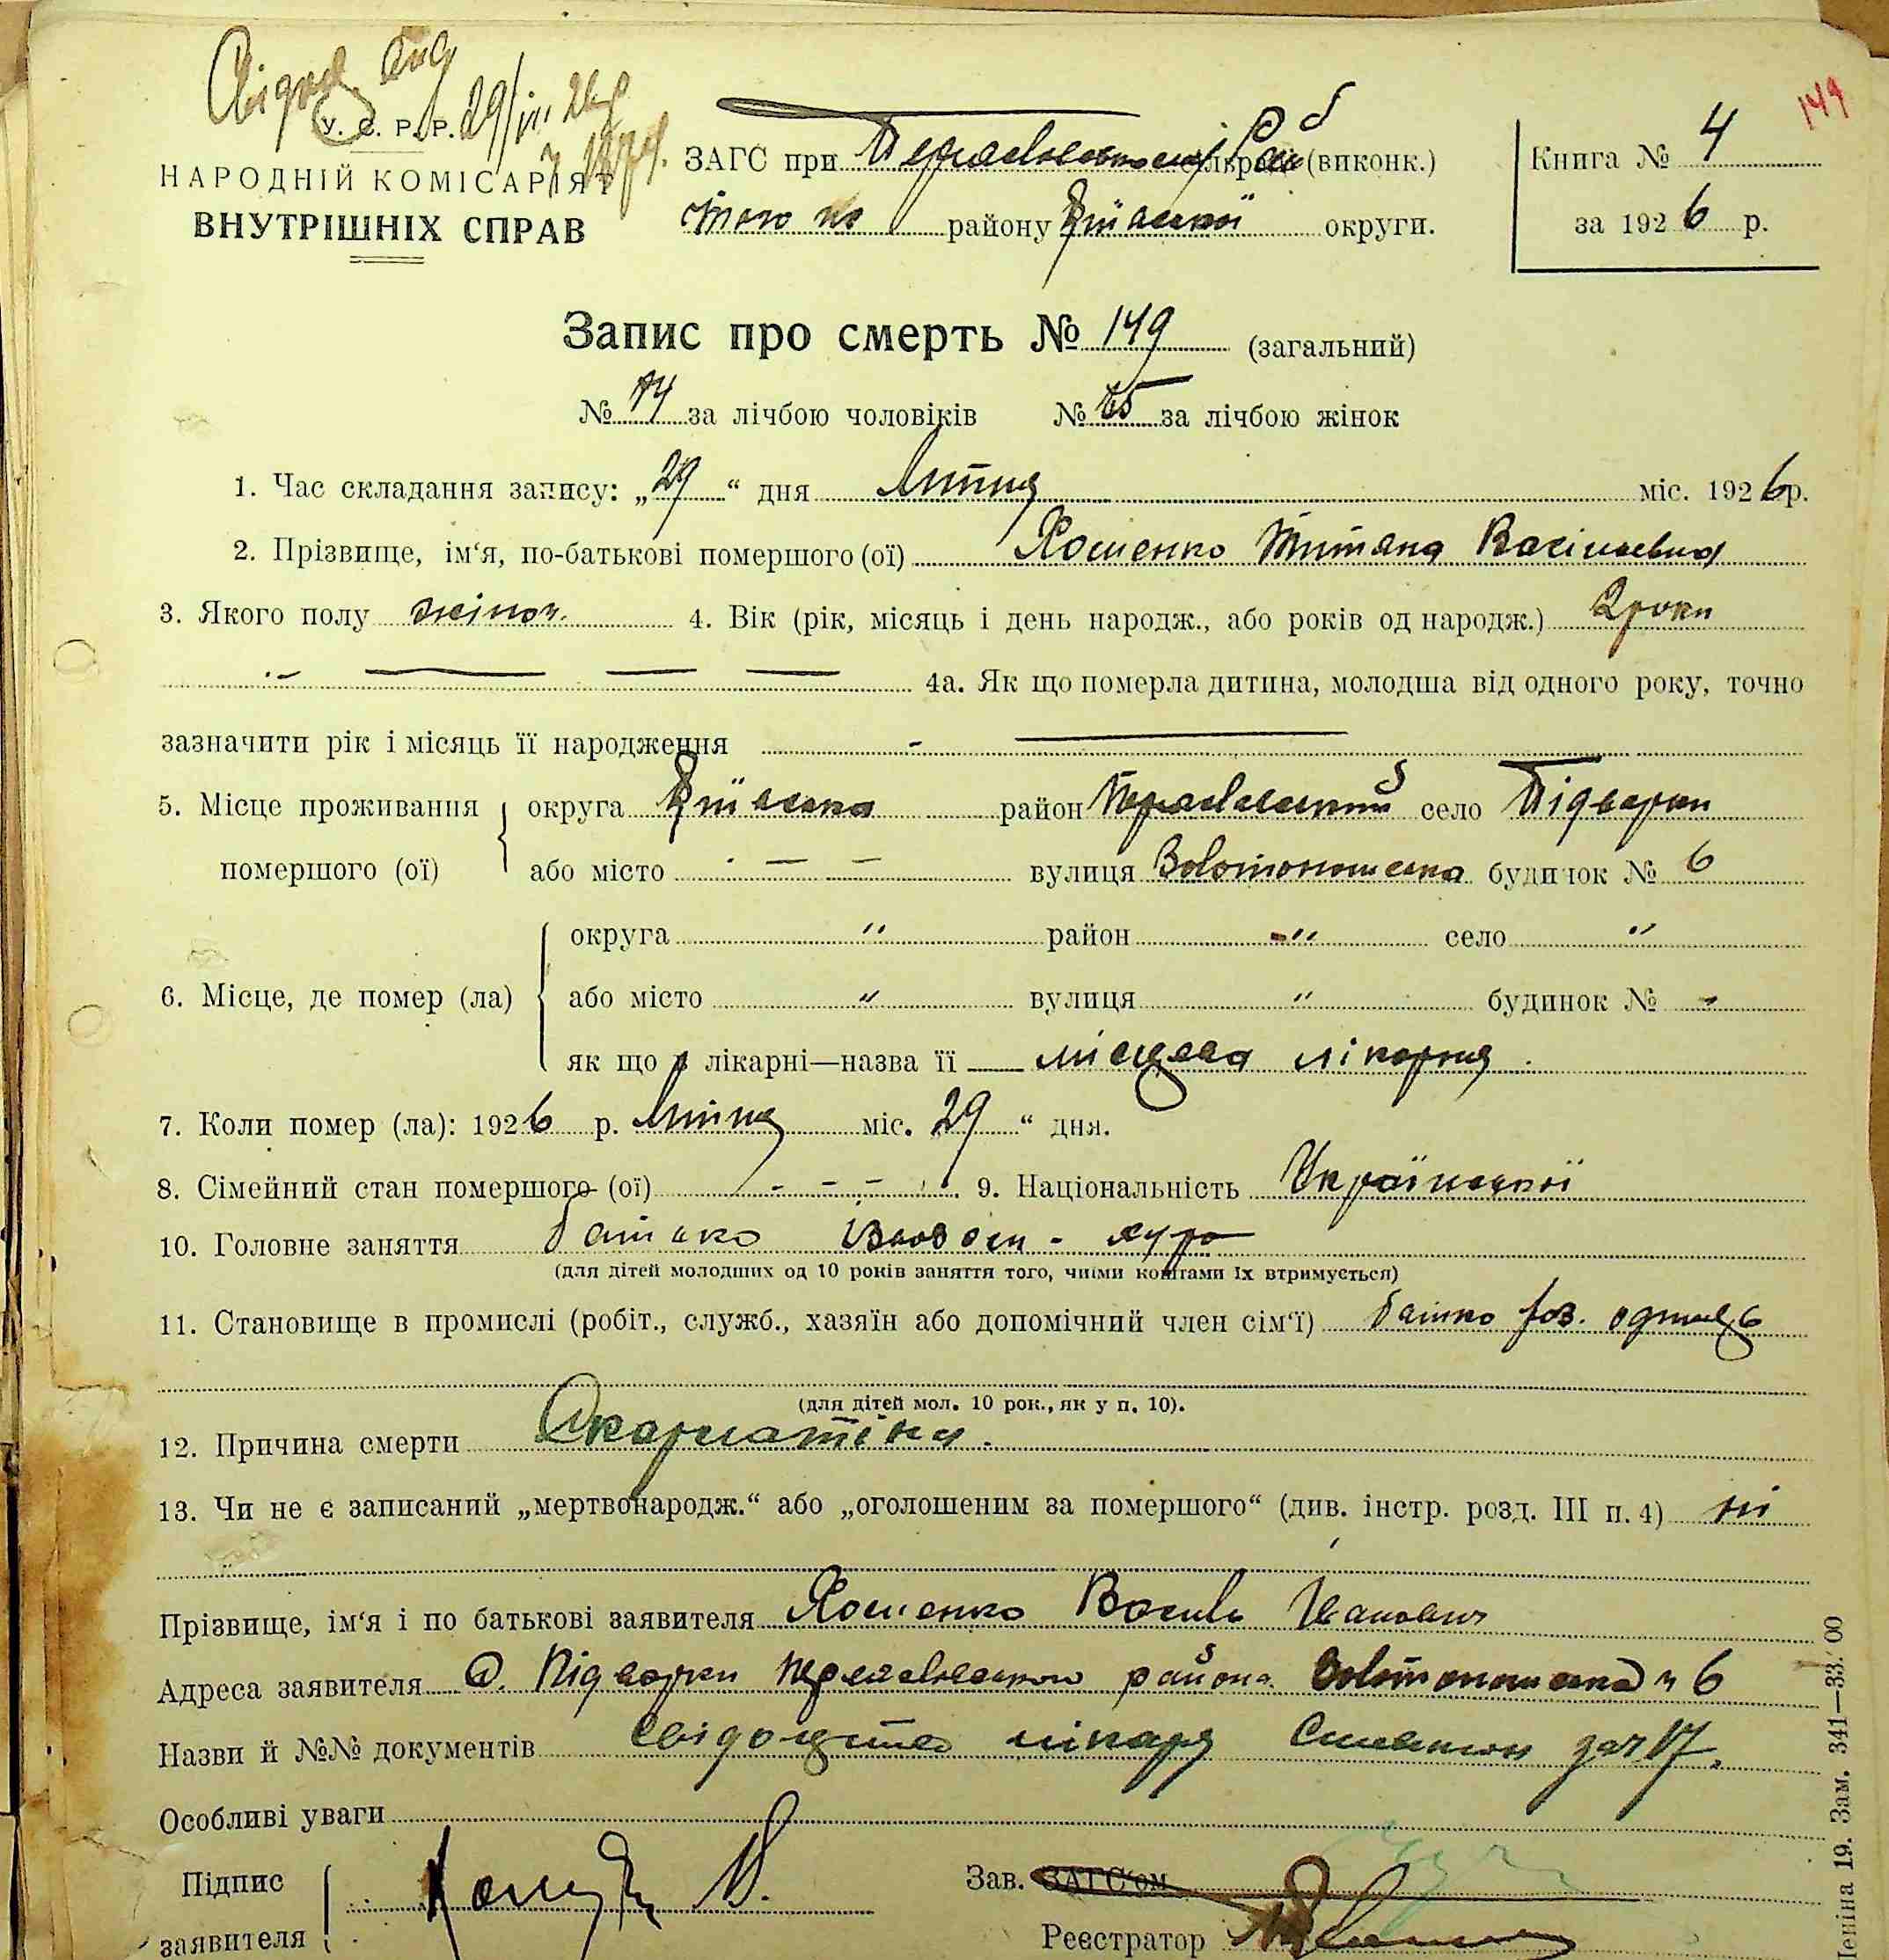 149
У. С. Р. Р. 29/VII 26р
НАРОДНІЙ КОМІСАРІЯТ
ВНУТРІШНІХ СПРАВ
ЗАГС при (виконк.)
району Київської округи.
Книга № 4
за 1926 р.
Запис про смерть № 149 (загальний)
№ 74 за лічбою чоловіків № 75 за лічбою жінок
1. Час складання запису: „29“ дня Липня міс. 1926 р.
2. Прізвище, ім‘я, по-батькові помершого (ої) Хоменко Титяна Васильевна
3. Якого полу жіноч. 4. Вік (рік, місяць і день народж., або років од народж.) 2 роки
4а. Як що померла дитина, молодша від одного року, точно
зазначити рік і місяць її народження
5. Місце проживання округа Київська район Переяславський село Підварки
помершого (ої) або місто вулиця Золотоношська будинок № 6
округа " район " село "
6. Місце, де помер (ла) або місто " вулиця " будинок № "
як що в лікарні—назва її місцева лікарня.
7. Коли помер (ла): 1926 р. Липня міс. 29 “ дня.
8. Сімейний стан помершого (ої) 9. Національність Української
10. Головне заняття батько
(для дітей молодших од 10 років заняття того, чиїми коштами їх втримується)
11. Становище в промислі (робіт., служб., хазяїн або допомічний член сім‘ї) батько
(для дітей мол. 10 рок., як у п. 10).
12. Причина смерти Скарлатіна.
13. Чи не є записаний „мертвонародж.“ або „оголошеним за помершого“ (див. інстр. розд. III п. 4) ні
Прізвище, ім‘я і по батькові заявителя Хоменко Василь Іванович
Адреса заявителя с. Підварки Переяславського района Золотоношська № 6
Назви й №№ документів Свідоцтво лікаря за № 17.
Особливі уваги
Підпис
заявителя
Зав. ЗАГС‘ом
Реєстратор
Леніна 19. Зам. 341—33.